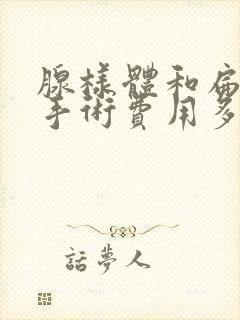 腺樣體和扁
手術費用多
話夢人